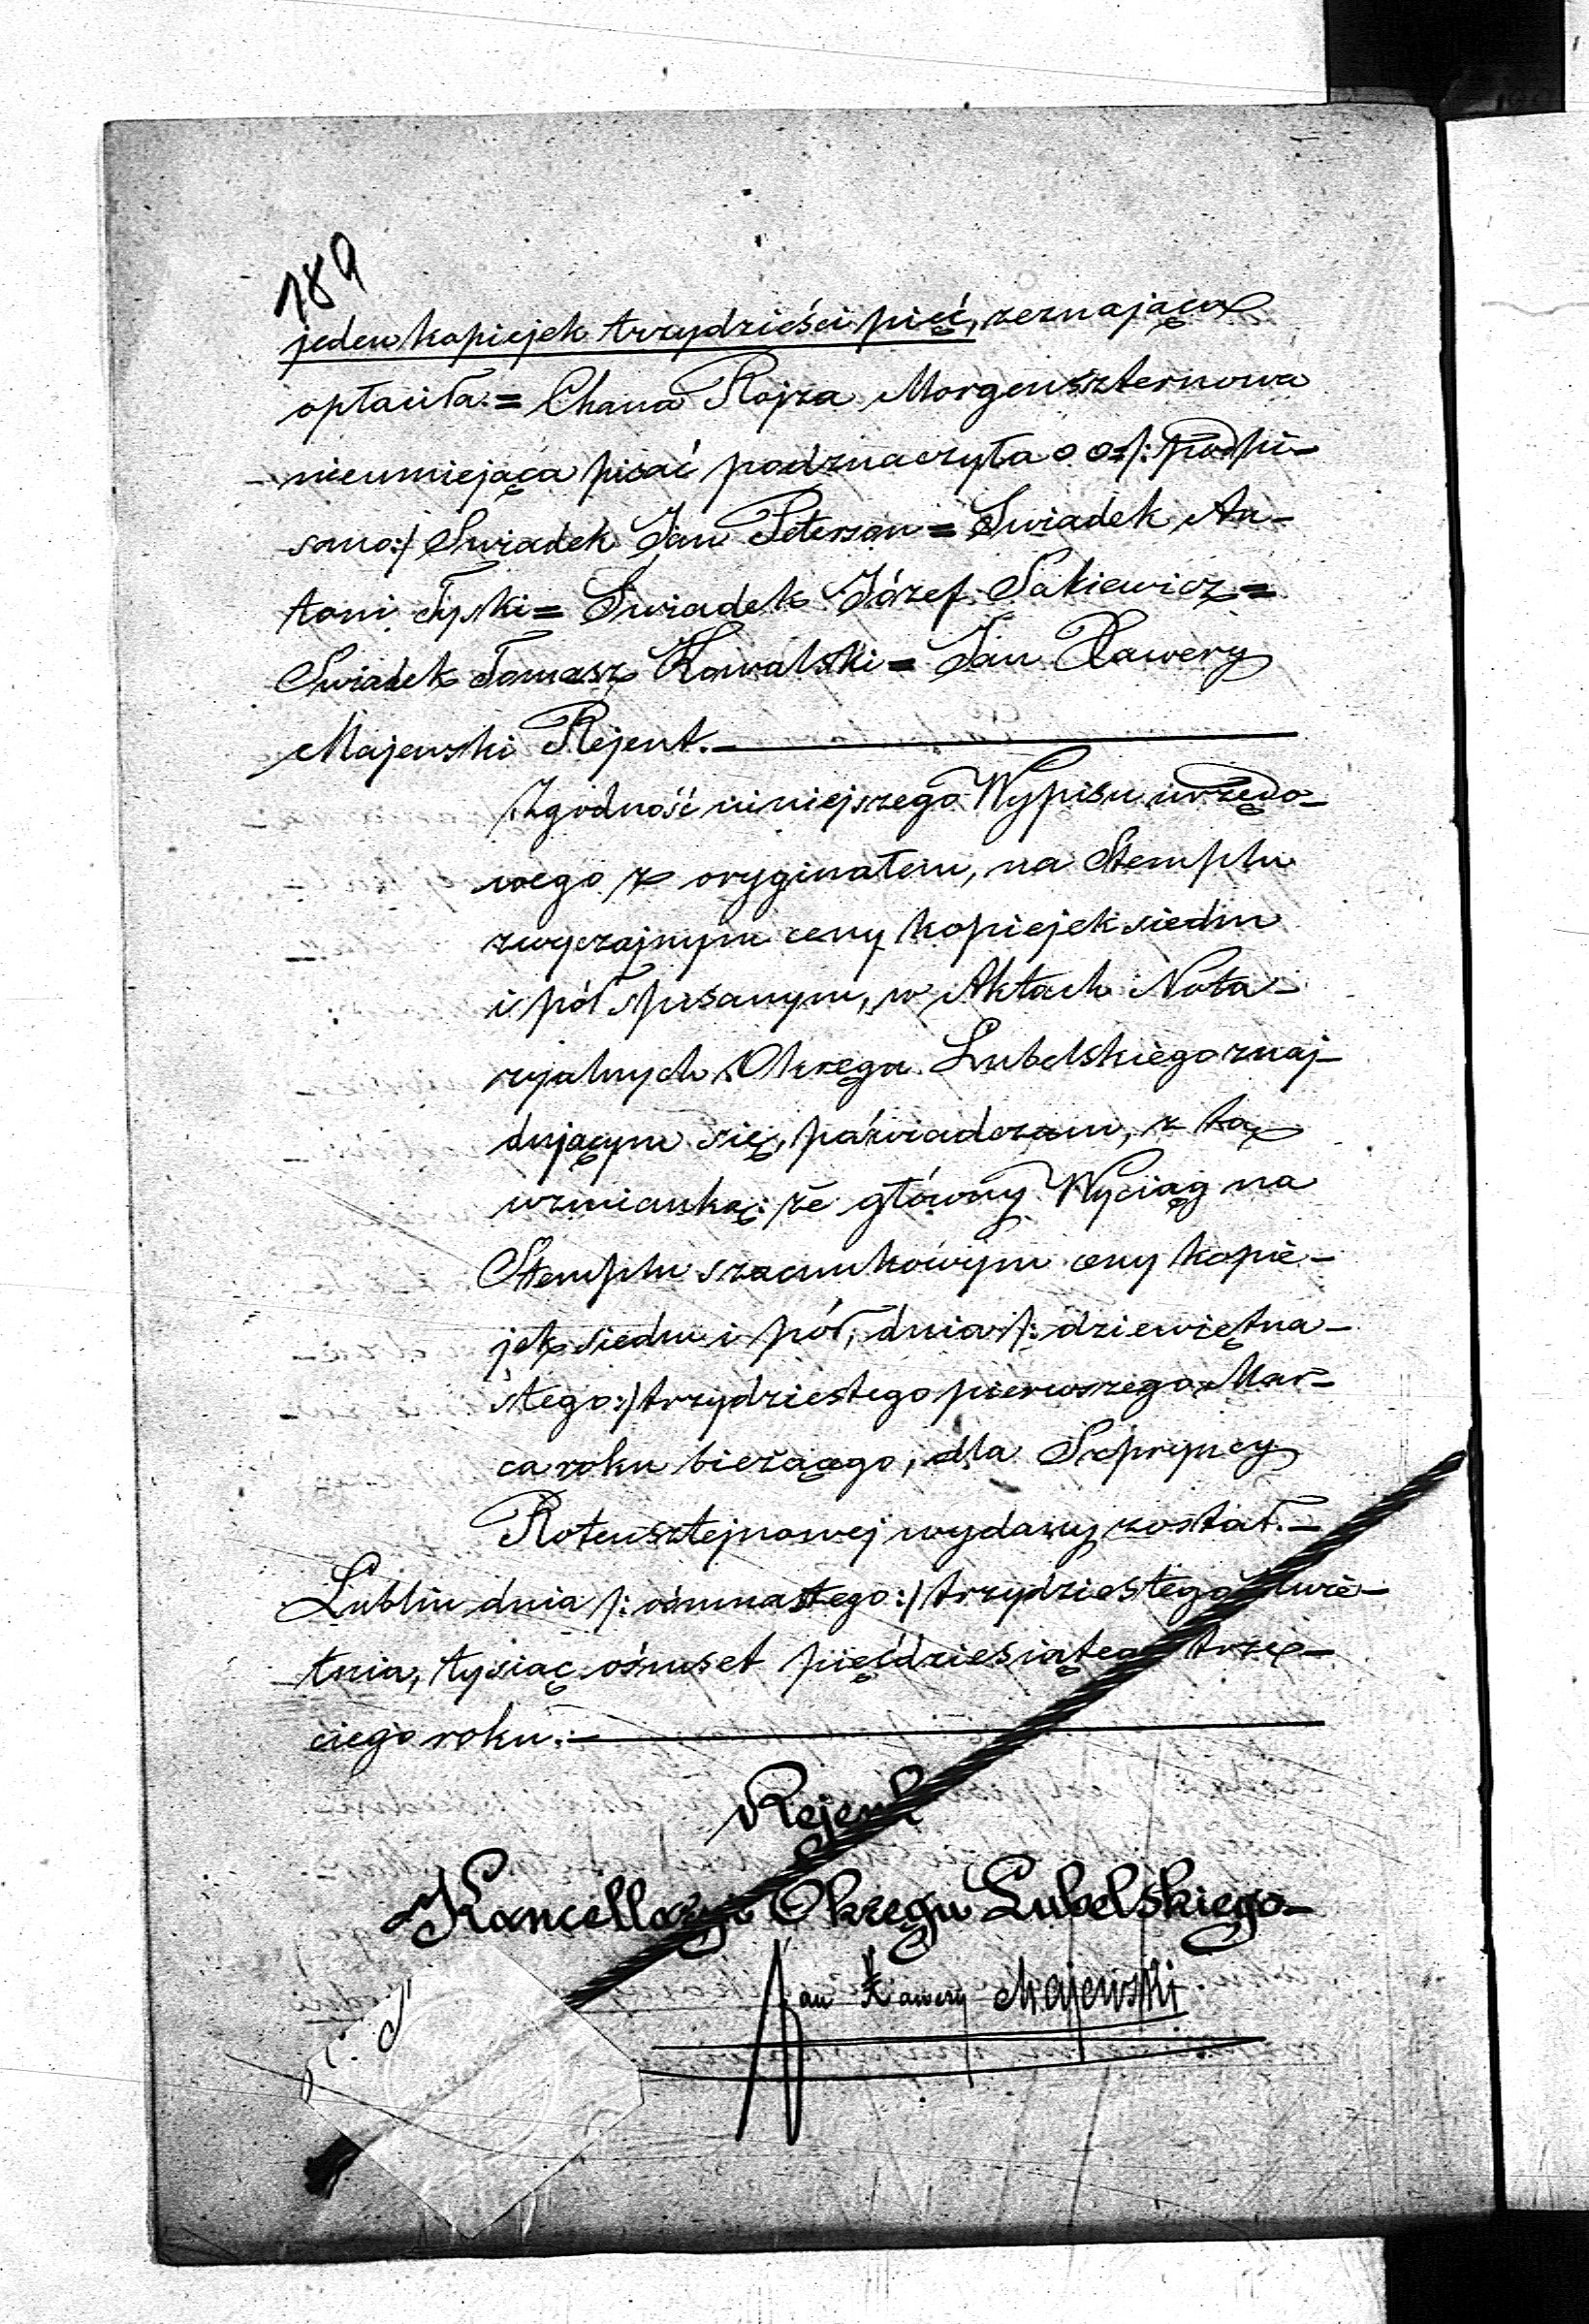 189
jeden kopiejek trzydzieści pięć, zeznająca
opłaciła. = Chana Rojza Morgenszternowa
nieumiejąca pisać podznaczyła o o =/: podpi-
sano:/ Swiadek Jan Peterson = Swiadek An-
toni Tyski = Swiadek Józef Sakiewicz =
Swiadek Tomasz Kowalski = Jan Xawery
Majewski Rejent. —
Zgodność niniejszego Wypisu urzędo-
wego z oryginałem, na Stemplu
zwyczajnym ceny kopiejek siedm
i pół spisanym, w Aktach Nota-
ryalnych Okręgu Lubelskiego znaj-
dującym się, poświadczam, z tą
wzmianką: że główny Wyciąg na
Stemplu szacunkowym ceny kopie-
jek siedm i pół, dnia /: dziewiętna-
stego:/ trzydziestego pierwszego Mar-
ca roku bieżącego, dla Szpryncy
Rotensztejnowej wydany został. —
Lublin dnia /: ośmnastego:/ trzydziestego Kwie-
tnia, tysiąc ośmset pięćdziesiątego trze-
ciego roku. —
Rejent
Kancellaryi Okręgu Lubelskiego
Jan Xawery Majewski